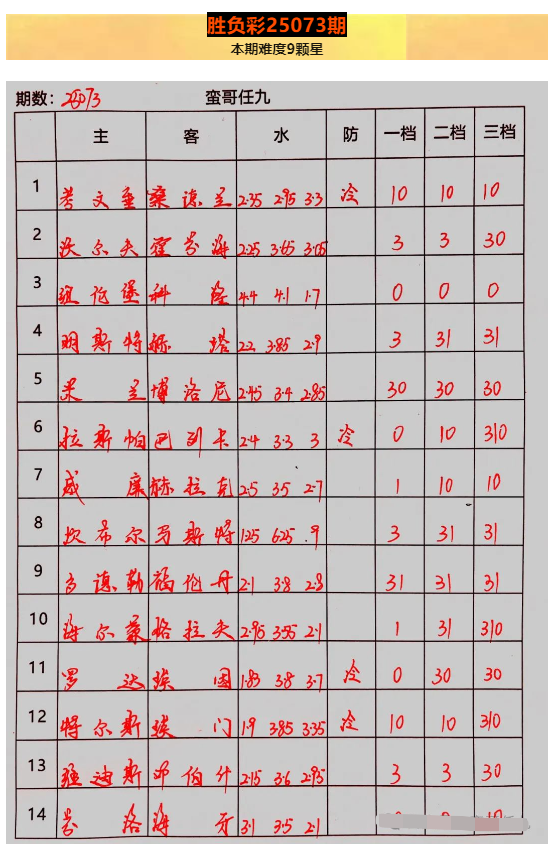 胜负彩25073期
本期难度9颗星
期数: 25073 蛮哥任九
主 客 水 防 一档 二档 三档
1 考文垂 桑德兰 2.35 2.95 3.3 冷 10 10 10
2 沃尔夫 霍芬海 2.25 3.65 3.05 3 3 30
3 纽伦堡 科隆 4.4 4.1 1.7 0 0 0
4 明斯特 赫塔 2.2 3.85 2.9 3 31 31
5 米兰 博洛尼 2.45 3.4 2.85 30 30 30
6 拉斯帕 巴列卡 2.4 3.3 3 冷 0 10 310
7 威廉 赫拉克 2.5 3.5 2.7 1 10 10
8 坎布尔 马斯特 1.25 6.25 9 3 31 31
9 多德勒 福伦丹 2.1 3.8 2.8 31 31 31
10 海尔蒙 格拉夫 2.95 3.55 2.1 1 31 310
11 罗达 埃因 1.83 3.8 3.7 冷 0 30 30
12 特尔斯 埃门 1.9 3.85 3.35 冷 10 10 310
13 强迪斯 邓伯什 2.15 3.6 2.95 3 3 30
14 芬洛 海牙 3.1 3.5 2.1